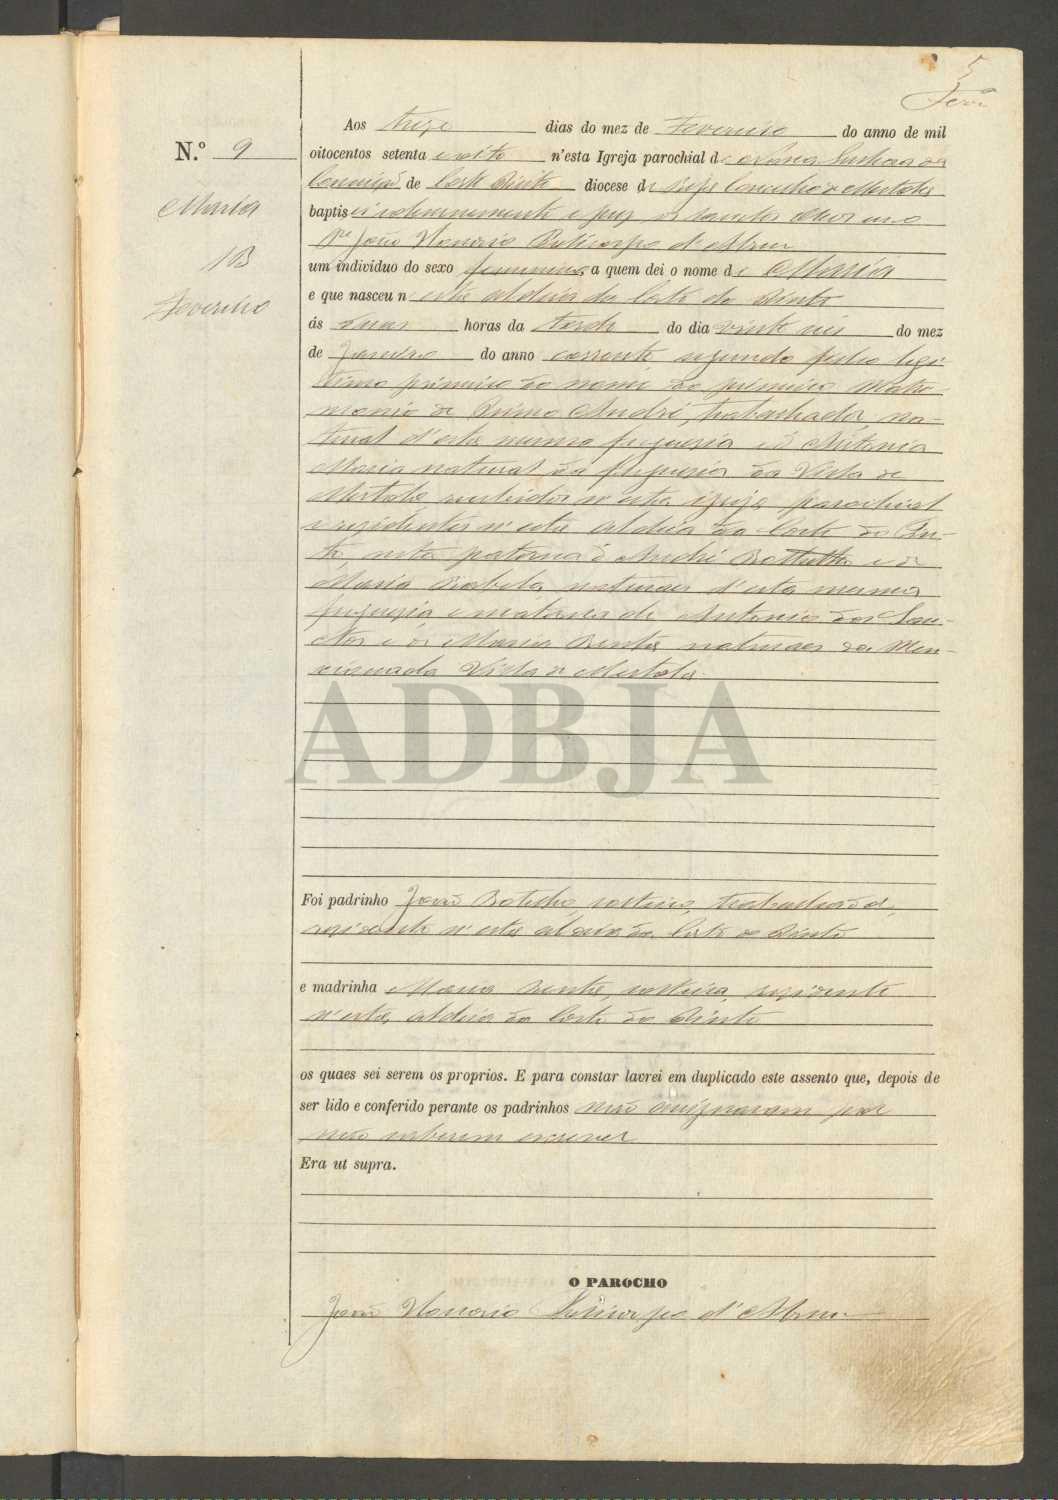 5
N.º 9
Maria
13
Fevereiro
Aos treze dias do mez de Fevereiro do anno de mil
oitocentos setenta e oito n'esta Igreja parochial de Nossa Senhora da
Conceição de Corte Pinto diocese de Beja Concelho de Mertola
baptisei solemnemente e puz os santos oleos eu o
Pe João Honorio Policarpo d'Abreu
um individuo do sexo feminino a quem dei o nome de Maria
e que nasceu n'esta aldeia da Corte do Pinto
ás duas horas da tarde do dia vinte seis do mez
de Janeiro do anno corrente segundo filho legi-
timo primeiro do nome do primeiro Matri-
monio de Primo André, trabalhador, na-
tural d'esta mesma freguesia e de Antonia
Maria natural da freguesia da Villa de
Mertola recebidos n'esta igreja parochial
e residentes n'esta aldeia da Corte do Pin-
to, neta paterna de André e de
Maria naturaes d'esta mesma
freguesia e materna de Antonio dos San-
tos e de Maria Benta, naturaes da Men-
cionada Villa de Mertola.
ADBJA
Foi padrinho João solteiro, trabalhador,
residente n'esta aldeia da Corte do Pinto
e madrinha Maria Benta, solteira, residente
n'esta aldeia da Corte do Pinto
os quaes sei serem os proprios. E para constar lavrei em duplicado este assento que, depois de
ser lido e conferido perante os padrinhos não assignaram por
não saberem escrever
Era ut supra.
O PAROCHO
João Honorio Policarpo d'Abreu